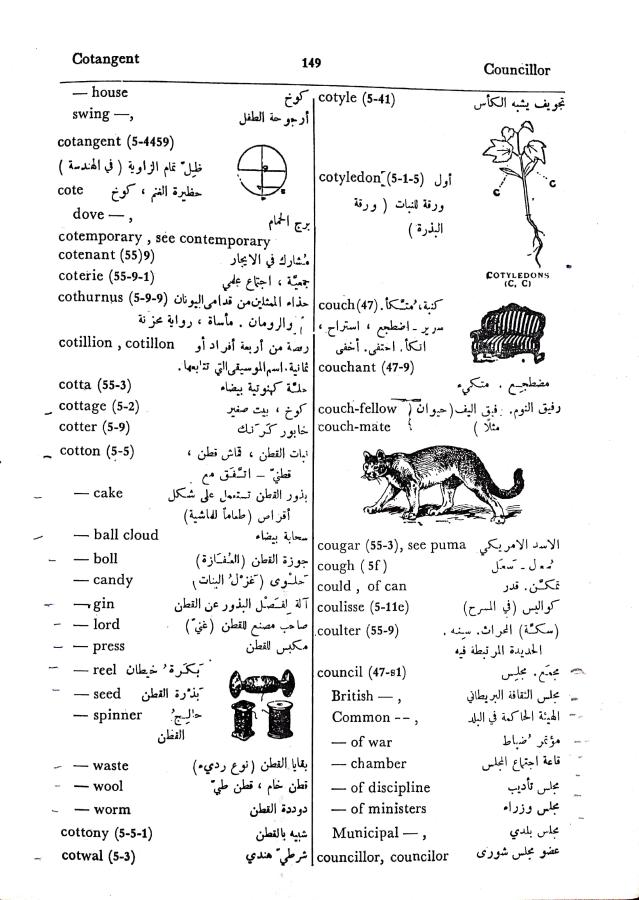 Cotangent
149
Councillor
— house كوخ
swing —, أرجوحة الطفل
cotangent (5-4459)
ظلّ تمام الزاوية ( في الهندسة )
cote حظيرة الغنم ، كوخ
dove — , برج الحمام
cotemporary , see contemporary
cotenant (55)9) مشارك في الايجار
coterie (55-9-1) جمعيّة ، اجتماع علمي
cothurnus (5-9-9) حذاء الممثلين من قدامى اليونان
والرومان . مأساة ، رواية محزنة
cotillion , cotillon رقصة من أربعة أفراد أو
ثمانية. اسم الموسيقى التي تتابعها.
cotta (55-3) حلّة كهنوتية بيضاء
cottage (5-2) كوخ ، بيت صغير
cotter (5-9) خابور
cotton (5-5) نبات القطن ، قماش قطن ،
قطنيّ – اتّفق مع
— cake بذور القطن تستعمل على شكل
أقراص (طعاماً للماشية)
— ball cloud سحابة بيضاء
— boll جوزة القطن
— candy حلوى (غزل البنات)
— gin آلة لفصل البذور عن القطن
— lord صاحب مصنع للقطن (غنيّ)
— press مكبس للقطن
— reel بكرة خيطان
— seed بذرة القطن
— spinner
القطن
— waste بقايا القطن (نوع رديء)
— wool قطن خام ، قطن طبّي
— worm دودة القطن
cottony (5-5-1) شبيه بالقطن
cotwal (5-3) شرطيّ هندي
cotyle (5-41) تجويف يشبه الكأس
cotyledon (5-1-5) أول
ورقة للنبات ( ورقة
البذرة )
C C
COTYLEDONS
(C, C)
couch(47) كنبة، مُتّكأ.
سرير - اضطجع ، استراح ،
اتكأ. اختفى. أخفى
couchant (47-9)
مضطجع . متكىء
couch-fellow رفيق النوم. رفيق اليف (حيوان
couch-mate مثلاً )
cougar (55-3), see puma الاسد الامريكي
cough (5f) سعل - سعال
could , of can تمكّن. قدر
coulisse (5-11e) كواليس (في المسرح)
coulter (55-9) (سكّة) المحراث. سينه .
الحديدة المرتبطة فيه
council (47-s1) مجمع. مجلس
British — , مجلس الثقافة البريطاني
Common -- , الهيئة الحاكمة في البلد
— of war مؤتمر ضباط
— chamber قاعة اجتماع المجلس
— of discipline مجلس تأديب
— of ministers مجلس وزراء
Municipal — , مجلس بلدي
councillor, councilor عضو مجلس شورى